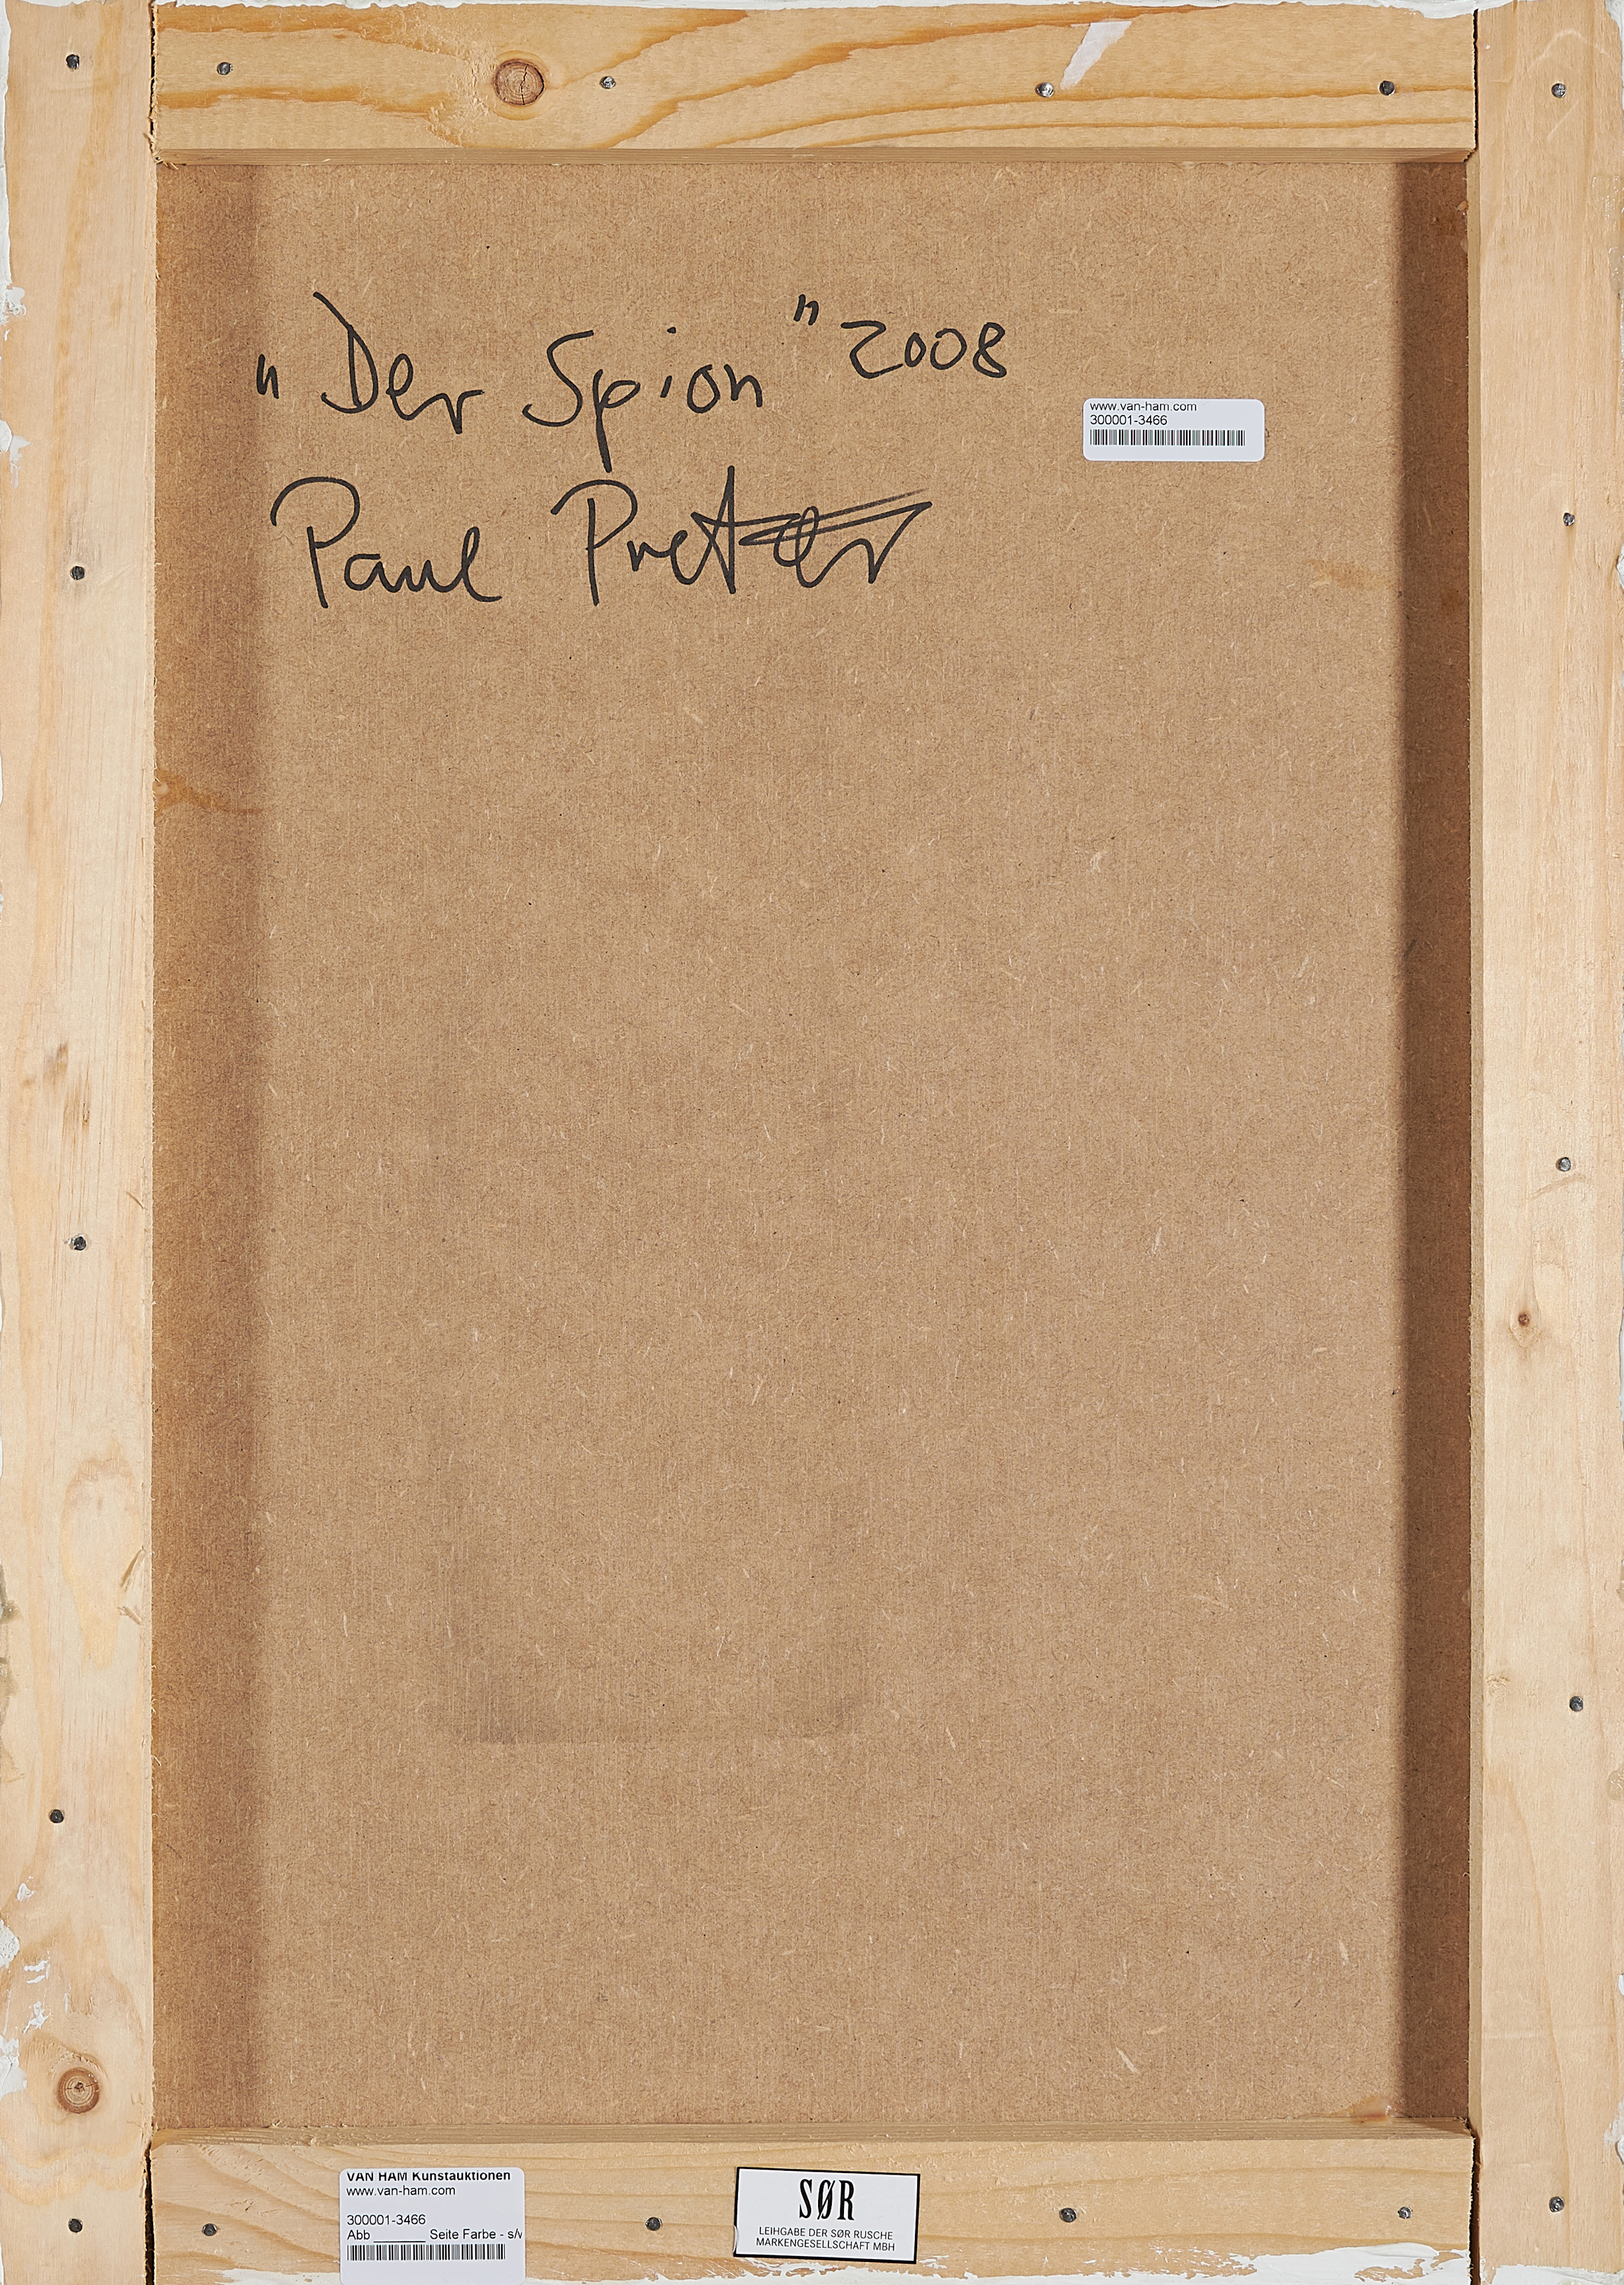 "Der Spion" 2008
www.van-ham.com
300001-3466
Paul Pretzer
VAN HAM Kunstauktionen
www.van-ham.com
300001-3466
Abb______ Seite Farbe - s/w
SØR
LEIHGABE DER SØR RUSCHE
MARKENGESELLSCHAFT MBH